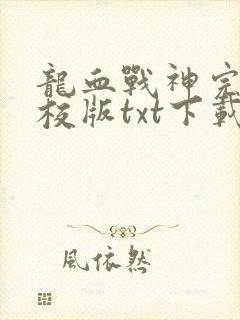 龍血戰神完
校版txt下載
風依然